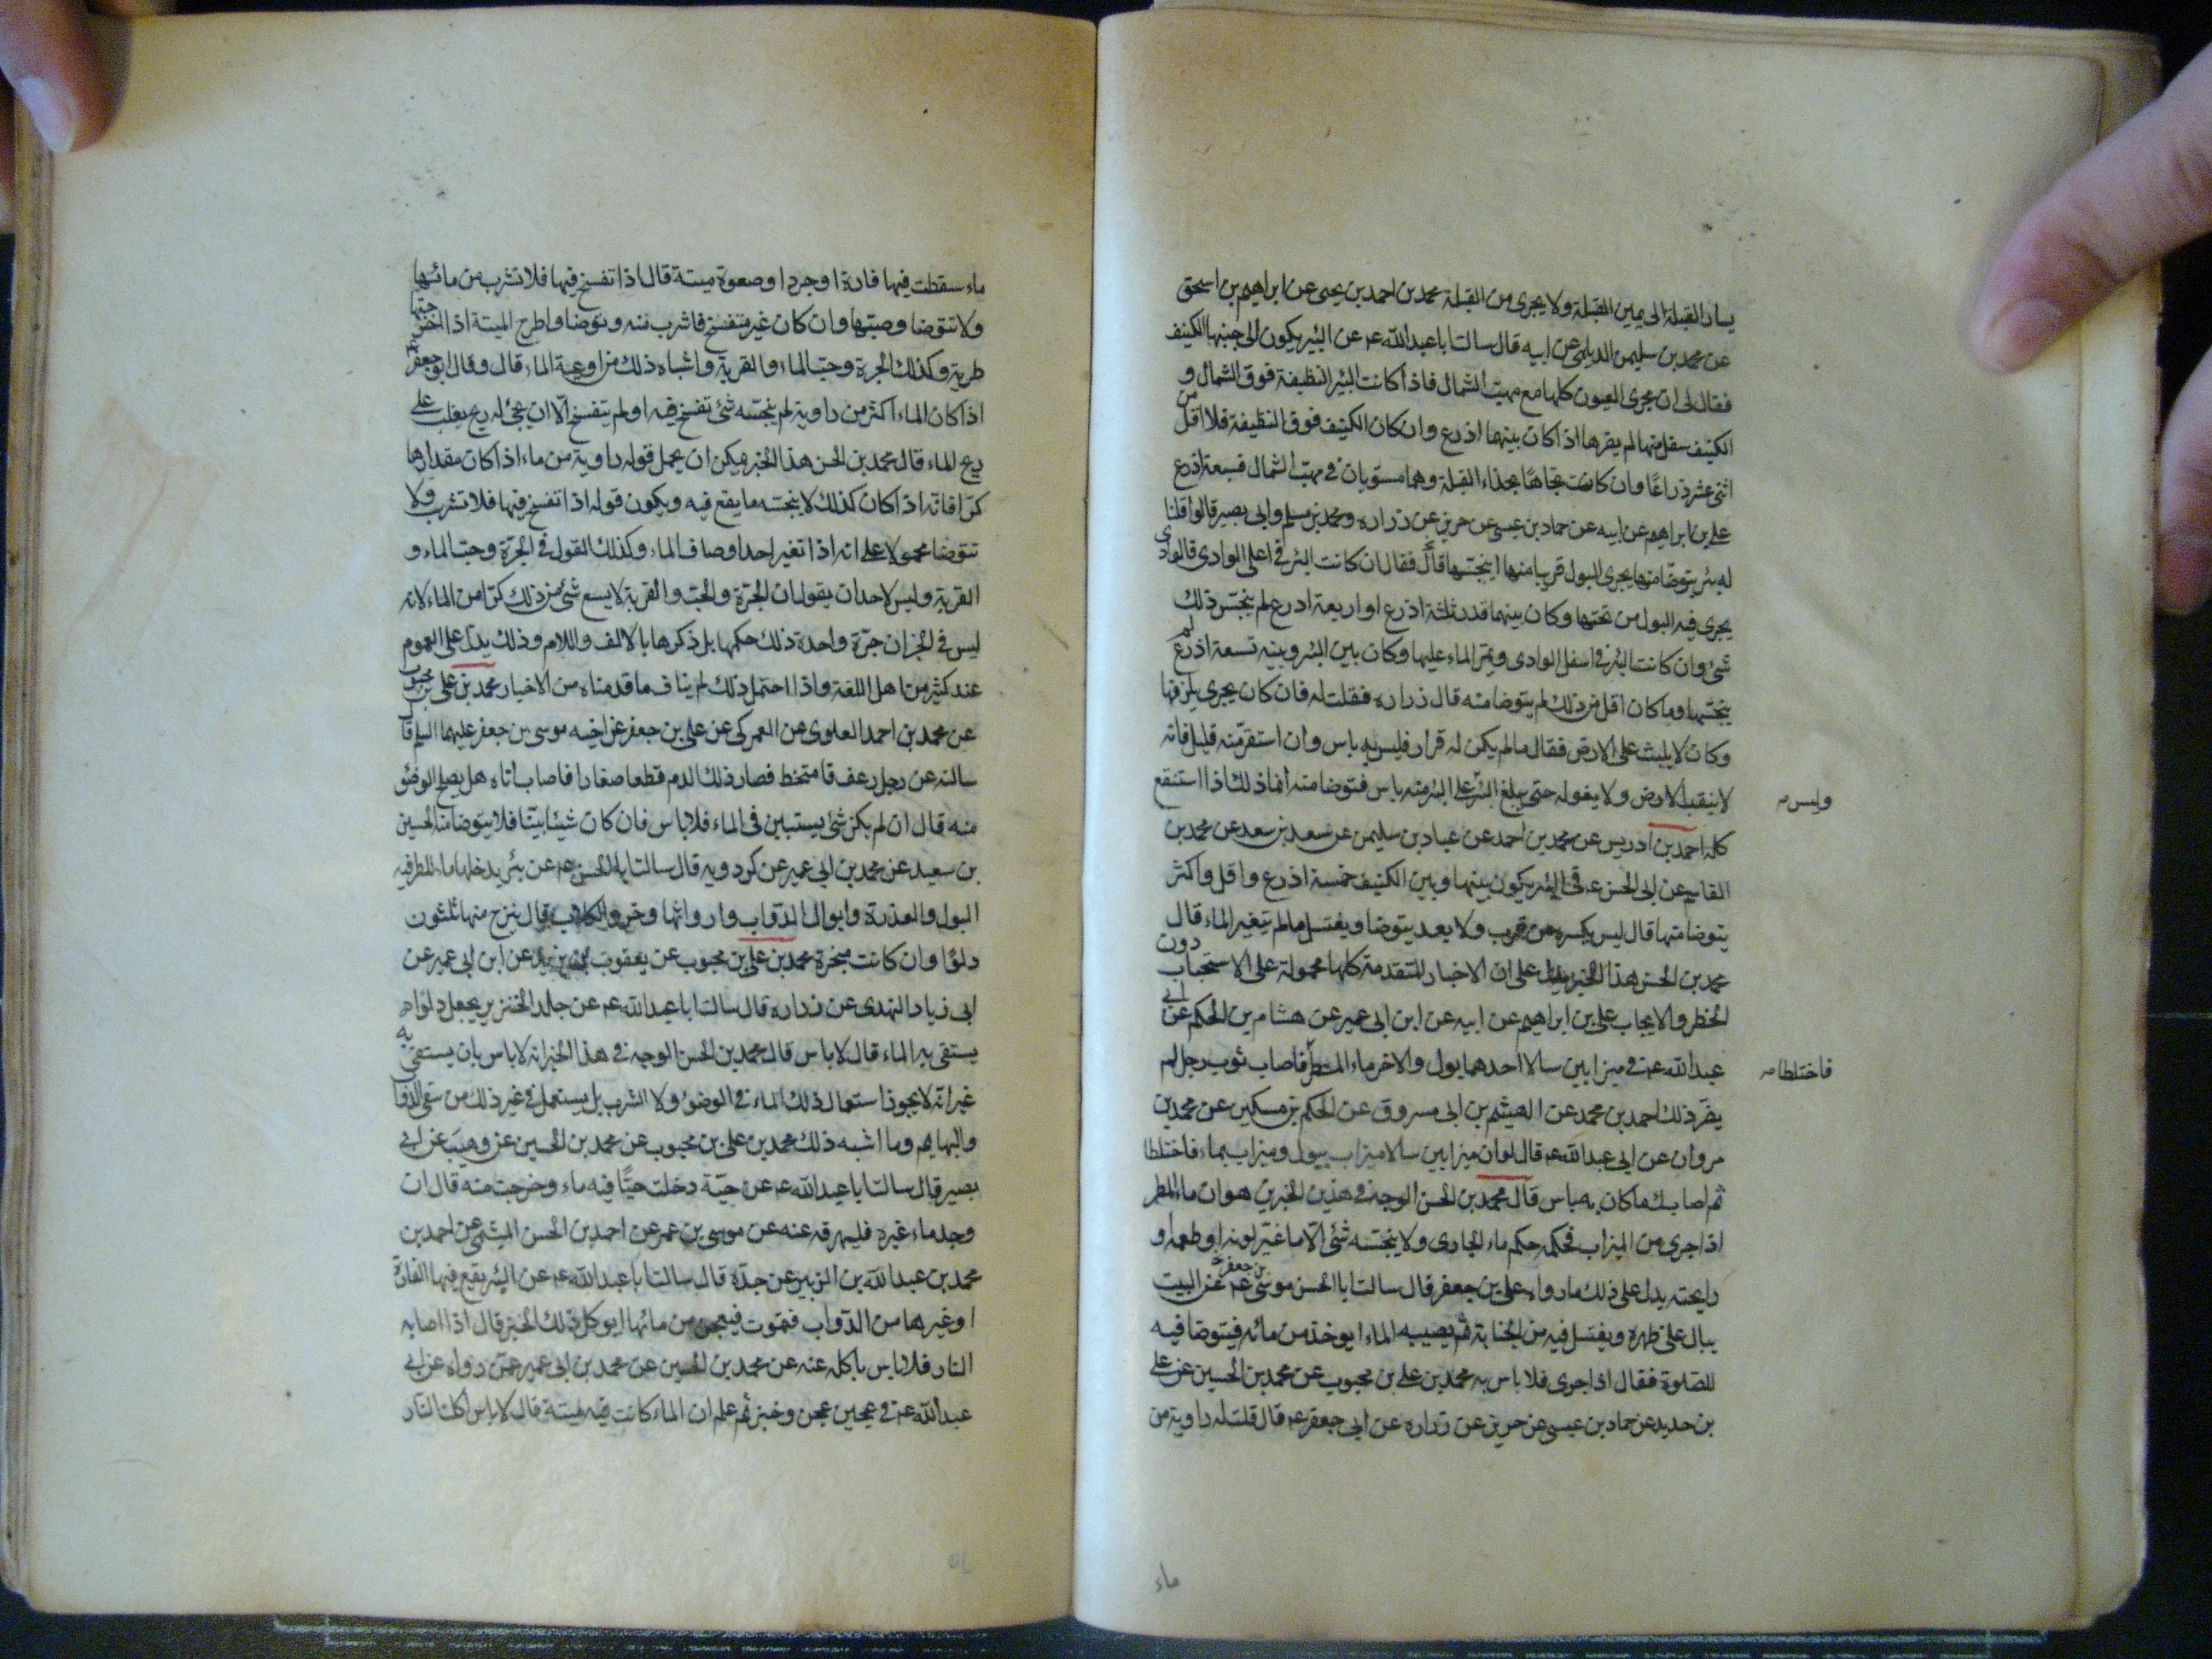 يسار القبلة الى يمين القبلة ولا يجرى من القبلة محمد بن احمد بن يحيى عن ابراهيم بن اسحق
عن محمد بن سليمن الديلمى عن ابيه قال سالت ابا عبد الله عم عن البئر يكون الى جنبها الكنيف
فقال لى ان مجرى العيون كلها مع مهب الشمال فاذا كانت البئر النظيفة فوق الشمال و
الكنيف سفل منها لم يضرها اذا كان بينهما اذرع وان كان الكنيف فوق النظيفة فلا اقل من
اثنى عشر ذراعا وان كانت تجاها بحذاء القبلة وهما مستويان فى مهب الشمال فسبعة اذرع
على بن ابراهيم عن ابيه عن حماد بن عيسى عن حريز عن زراره ومحمد بن مسلم وابى بصير قالوا قلنا
له بئر يتوضا منها يجرى البول قريبا منها اينجسها قال فقال ان كانت البئر فى اعلى الوادى والوادى
يجرى فيه البول من تحتها وكان بينهما قدر ثلثة اذرع او اربعة اذرع لم ينجس ذلك
شئ وان كانت البئر فى اسفل الوادى ويمر الماء عليها وكان بين البئر وبينه تسعة اذرع لم
ينجسها وما كان اقل من ذلك لم يتوضا منه قال زراره فقلت له فان كان يجرى بلزقها
وكان لا يلبث على الارض فقال ما لم يكن له قرار فليس به باس وان استقر منه قليل فانه
لا ينقب الارض ولا يغوله حتى يبلغ البئر على البئر منه باس فتوضا منه انما ذلك اذا استنقع
وليس
كله احمد بن ادريس عن محمد بن احمد عن عباد بن سليمن عن سعد بن سعد عن محمد بن
القاسم عن ابى الحسن عم فى البئر يكون بينها وبين الكنيف خمسة اذرع واقل واكثر
يتوضا منها قال ليس يكره من قرب ولا بعد يتوضا ويغتسل ما لم يتغير الماء قال
محمد بن الحسن هذا الخبر يدل على ان الاخبار المتقدمة كلها محمولة على الاستحباب دون
الحظر والايجاب على بن ابراهيم عن ابيه عن ابن ابى عمير عن هشام بن الحكم عن ابى
عبد الله عم فى ميزابين سالا احدهما بول والاخر ماء المطر فاصاب ثوب رجل لم
فاختلطا
يضر ذلك احمد بن محمد عن الهيثم بن ابى مسروق عن الحكم بن مسكين عن محمد بن
مروان عن ابى عبد الله عم قال لو ان ميزابين سالا ميزاب ببول وميزاب بماء فاختلطا
ثم اصابك ما كان به باس قال محمد بن الحسن الوجه فى هذين الخبرين هو ان ماء المطر
اذا جرى من الميزاب فحكمه حكم ماء الجارى ولا ينجسه شئ الا ما غير لونه او طعمه او
رايحته يدل على ذلك ما رواه على بن جعفر قال سالت ابا الحسن موسى بن جعفر عم عن البيت
يبال على ظهره ويغتسل فيه من الجنابة ثم يصيبه الماء ايوخذ من مائه فيتوضا فيه
للصلوة فقال اذا جرى فلا باس به محمد بن على بن محبوب عن محمد بن الحسين عن على
بن حديد عن حماد بن عيسى عن حريز عن زراره عن ابى جعفر عم قال قلت له راوية من
ماء
ماء سقطت فيها فارة او جرد او صعوة ميتة قال اذا تفسخ فيها فلا تشرب من مائها
ولا تتوضا وصبها وان كان غير متفسخ فاشرب منه وتوضا واطرح الميتة اذا اخرجتها
طرية وكذلك الجرة وحب الماء والقربة واشباه ذلك من اوعية الماء قال وقال ابو جعفر عم
اذا كان الماء اكثر من راوية لم ينجسه شئ تفسخ فيه او لم يتفسخ الا ان يجئ له ريح يغلب على
ريح الماء قال محمد بن الحسن هذا الخبر يمكن ان يحمل قوله راوية من ماء اذا كان مقدارها
كرا فانه اذا كان كذلك لا ينجسه ما يقع فيه ويكون قوله اذا تفسخ فيها فلا تشرب ولا
تتوضا محمولا على انه اذا تغير احد اوصاف الماء وكذلك القول فى الجرة وحب الماء و
القربة وليس لاحد ان يقول ان الجرة والحب والقربة لا يسع شئ من ذلك كرا من الماء لانه
ليس فى الخبر ان جرة واحدة ذلك حكمها بل ذكرها بالالف واللام وذلك يدل على العموم
عند كثير من اهل اللغة واذا احتمل ذلك لم يناف ما قدمناه من الاخبار محمد بن على بن محبوب
عن محمد بن احمد العلوى عن العمركى عن على بن جعفر عن اخيه موسى بن جعفر عليهما السلم قال
سالته عن رجل رعف فامتخط فصار ذلك الدم قطعا صغارا فاصاب اناه هل يصلح الوضؤ
منه قال ان لم يكن شئ يستبين فى الماء فلا باس فان كان شيئا بينا فلا يتوضا منه الحسين
بن سعيد عن محمد بن ابى عمير عن كردويه قال سالت ابا الحسن عم عن بئر يدخلها ماء المطر فيه
البول والعذرة وابوال الدواب واروائها وخرء الكلاب قال ينزح منها ثلثون
دلوا وان كانت مبخرة محمد بن على بن محبوب عن يعقوب بن يزيد عن ابن ابى عمير عن
ابى زياد النهدى عن زراره قال سالت ابا عبد الله عم عن جلد الخنزير يجعل دلوا
يستقى به الماء قال لا باس قال محمد بن الحسن الوجه فى هذا الخبر انه لا باس بان يستقى به
غير انه لا يجوز استعمال ذلك الماء فى الوضؤ ولا الشرب بل يستعمل فى غير ذلك من سقى الدواب
والبهايم وما اشبه ذلك محمد بن على بن محبوب عن محمد بن الحسين عن وهيب عن ابى
بصير قال سالت ابا عبد الله عم عن حية دخلت حبا فيه ماء وخرجت منه قال ان
وجد ماء غيره فليهرقه عنه عن موسى بن عمر عن احمد بن الحسن الميثمى عن احمد بن
محمد بن عبد الله بن الزبير عن جده قال سالت ابا عبد الله عم عن البئر يقع فيها الفارة
او غيرها من الدواب فتموت فيعجن من مائها ايوكل ذلك الخبز قال اذا اصابه
النار فلا باس باكله عنه عن محمد بن الحسين عن محمد بن ابى عمير عمن رواه عن ابى
عبد الله عم فى عجين عجن وخبز ثم علم ان الماء كانت فيه ميتة قال لا باس اكلت النار